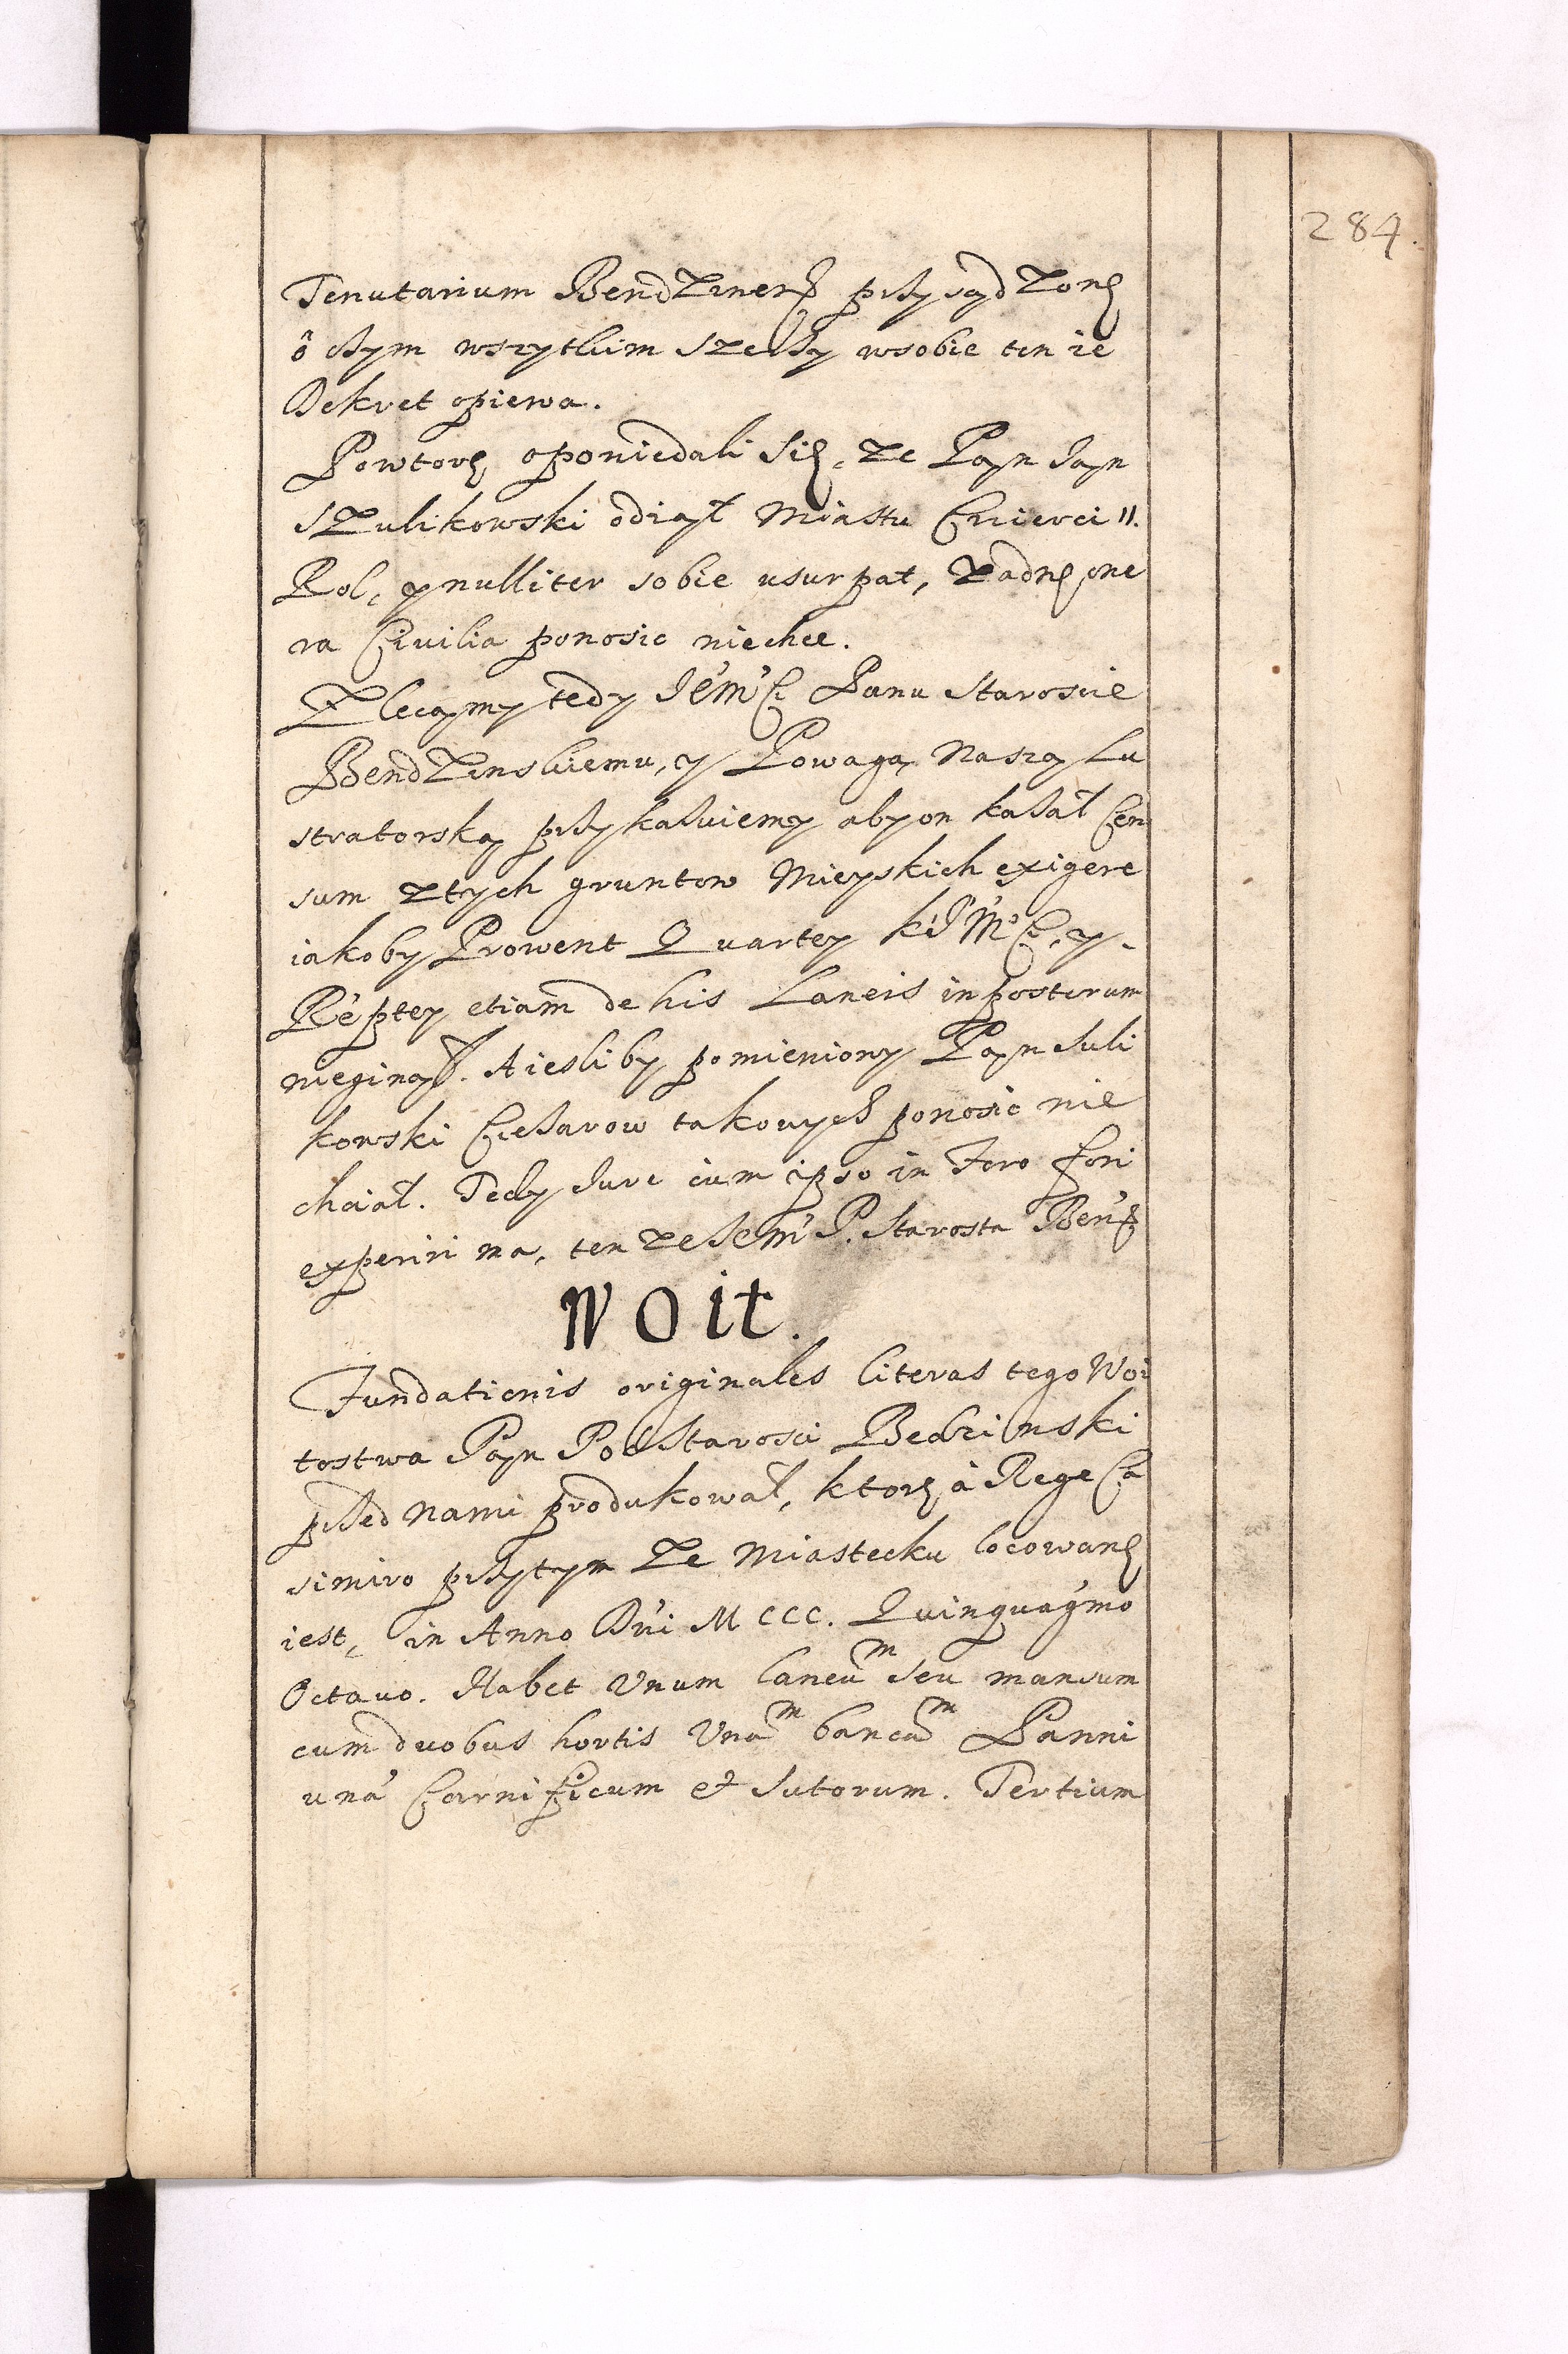 284.
Tenutarium Bendzinens przysądzonę
ô czym wszytkim szerzy wsobie ten ze
Dekret opiewa.
Powtorę opowiedali się, ze Pąn Jąn
Szulikowski odiął Miastu Czwierci 11.
Rol, y nulliter sobie usurpat, zadnę one
ra Civilia ponosic niechce.
Zlecąmy tedy Jeᵒmᵒści Panu Staroscie
Bendzinskiemu, y Powagą Naszą Lu
stratorską przykazuiemy aby on kazał Cen
sum ztych gruntow Mieyskich exigere
iakoby Prowent Quartey KJMᵒCi, y
Répṫey etiam de his Laneis inposterum
nieginął. A iesliby pomieniony Pąn Suli
kowski Ciezarow takowych ponosic nie
chciał. Tedy Jure cum ipso in Foro fori
experiri ma, ten ze Jem P. Starosta Ben
WOIT.
Fundationis originales literas tego Woi
tostwa Pąn PodStarosci Bedzinski
przed Nami produkował, ktorę à Rege Ca
simiro przytym ze Miastecku locowanę
iest, in Anno Dni MCCC. Quinquagmo
Octauo. Habet Vnum laneum seu mansum
cum duobus hortis Vnam bancam Panni
una Carnificum et Sutorum. Tertium